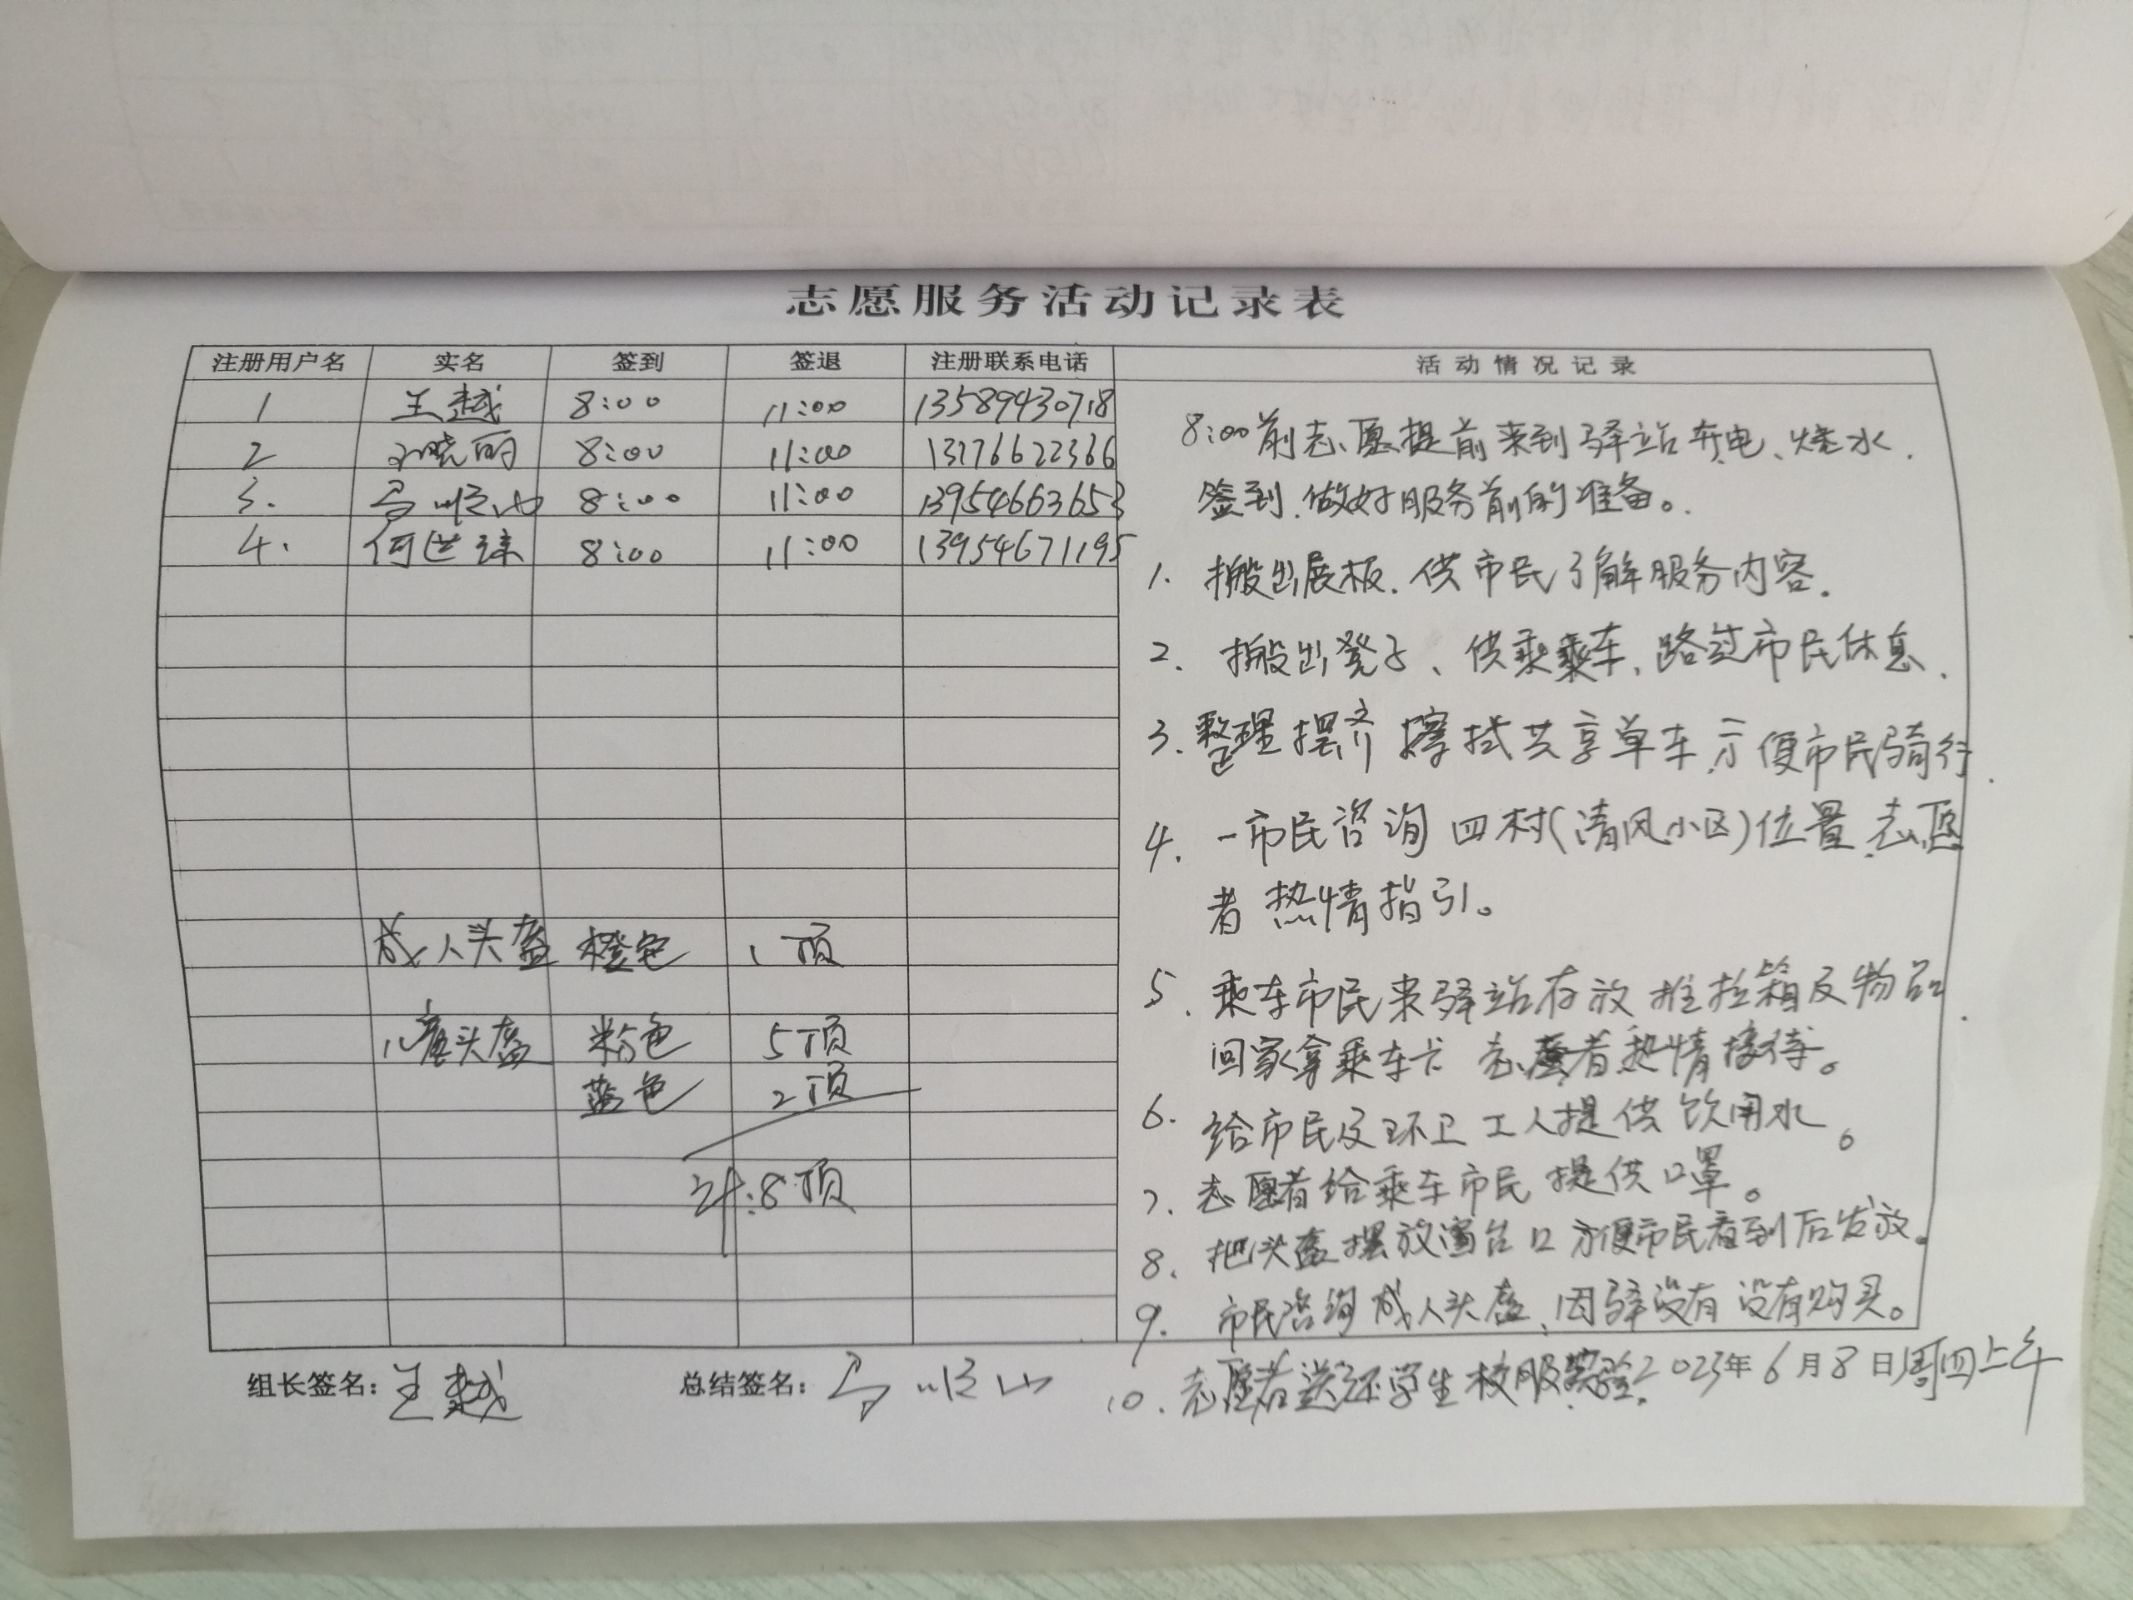 志愿服务活动记录表
注册用户名 实名 签到 签退 注册联系电话 活动情况记录
1 王越 8:00 11:00 13589430718
2 晓丽 8:00 11:00 13176622366
3. 马顺山 8:00 11:00 13954663653
4. 何世 8:00 11:00 13954671195
成人头盔 橙色 1顶
儿童头盔 粉色 5顶
蓝色 2顶
计:8顶
8:00前志愿提前来到驿站开电、烧水.
签到.做好服务前的准备。
1. 搬出展板.供市民了解服务内容.
2. 搬出凳子、供乘乘车、路过市民休息.
3. 整理摆齐 擦拭共享单车.方便市民骑行.
4. 一市民咨询 四村(清风小区)位置.志愿
者 热情指引。
5. 乘车市民来驿站存放 推拉箱及物品.
回家拿乘车卡 志愿者热情接待。
6. 给市民及环卫工人提供饮用水。
7. 志愿者给乘车市民 提供口罩。
8. 把头盔摆放窗台口 方便市民看到后发放。
9. 市民咨询成人头盔、因驿没有 没有购买。
10. 志愿者送还学生校服
组长签名: 王越 总结签名: 马顺山 2023年6月8日周四上午